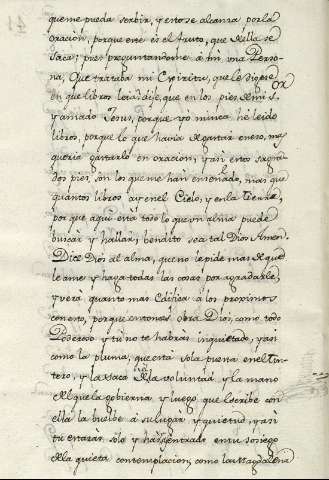 que me pueda servir, y esto se alcanza por la
oracion, porque este es el fruto, que della se
saca; pues preguntandome a mi una Perso-
na, Que trataba mi Espiritu, que le digese
en que libros leia, dije, que en los pies de mi S.or
y amado Jesus, porque yo nunca he leido
libros, porque lo que havia de gastar en eso, me
queria gastarlo en oracion, y asi estos sagra-
dos pies son los que me han enseñado, mas que
quantos libros ay en el Cielo, y en la Tierra,
porque aqui está todo lo que vn alma puede
buscar y hallar, bendito sea tal Dios Amen.
Dice Dios al alma, que no le pide mas de que
le ame y haga todas las cosas por agradarle,
y verá quanto mas edifica á los proximos
con esto, porque entonces obra Dios, como todo
Poderoso y tu no te habras inquietado, y asi
como la pluma, que está sola puesta en el tin-
tero, y la saca de la voluntad y la mano
del que la gobierna y luego que escribe con
ella la buelbe á su lugar, y quietud, y asi
tu estaras solo y dentro en tu sosiego
de la quieta contemplacion, como la Magdalena